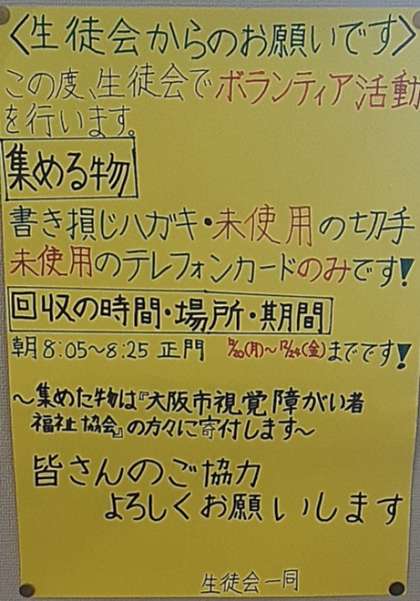 <生徒会からのお願いです>
この度、生徒会でボランティア活動
を行います。
集める物
書き損じハガキ・未使用の切手
未使用のテレフォンカードのみです!
回収の時間・場所・期間
朝8:05~8:25 正門 12/20(月)~12/24(金)までです!
~集めた物は『大阪市視覚障がい者
福祉協会』の方々に寄付します~
皆さんのご協力
よろしくお願いします
生徒会一同